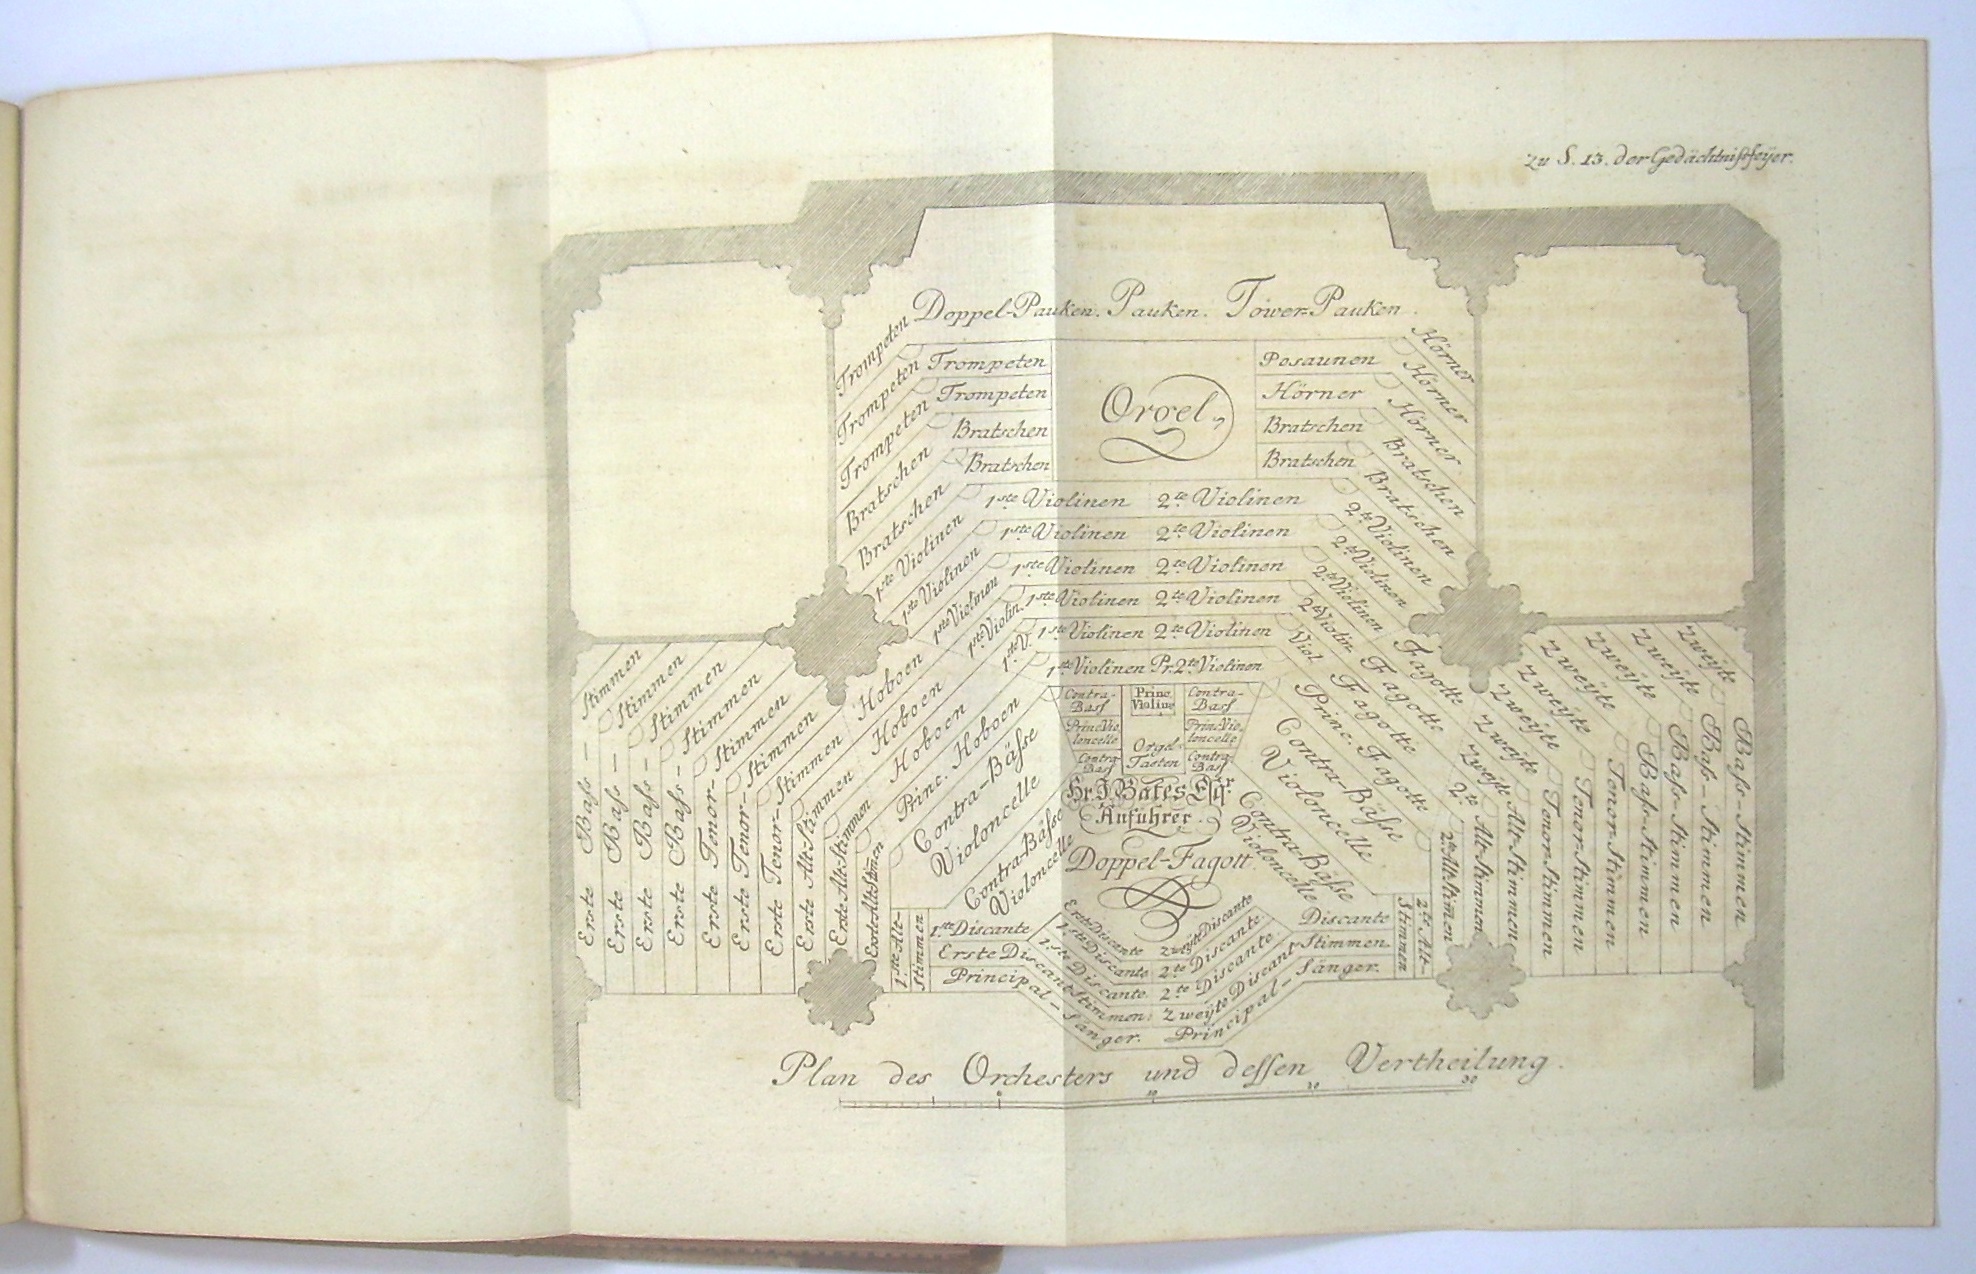 Zu S. 13. der Gedächtnißfeÿer.
Doppel-Pauken. Pauken. Tower-Pauken.
Trompeten
Trompeten
Trompeten
Bratschen
Bratschen
1ste Violinen
1ste Violinen
1ste Violinen
1ste Violin.
1ste V.
Trompeten
Trompeten
Bratschen
Bratschen
Orgel,
Posaunen
Hörner
Bratschen
Bratschen
Hörner
Hörner
Hörner
Bratschen
Bratschen
2te Violinen
2te Violinen
2te Violinen
2te Violin.
Viol.
1ste Violinen 2te Violinen
1ste Violinen 2te Violinen
1ste Violinen 2te Violinen
1ste Violinen 2te Violinen
1ste Violinen 2te Violinen
1ste Violinen Pr. 2te Violinen
Contra-
Bass
Princ.
Violine
Contra-
Bass
Princ. Vio
loncelle
Princ. Vio
loncelle
Contra-
Bass
Orgel-
Tasten
Contra-
Bass
Hr. J. Bates Esqr.
Anführer.
Doppel-Fagott.
Hoboen
Hoboen
Hoboen
Princ. Hoboen
Contra-Bässe
Violoncelle
Contra-Bässe
Violoncelle
Fagotte
Fagotte
Fagotte
Princ. Fagotte
Contra-Bässe
Violoncelle
Contra-Bässe
Violoncelle
Erste Bass-Stimmen
Erste Bass-Stimmen
Erste Bass-Stimmen
Erste Bass-Stimmen
Erste Tenor-Stimmen
Erste Tenor-Stimmen
Erste Tenor-Stimmen
Erste Alt-Stimmen
Erste Alt-Stimmen
Erste Alt-Stimmen
1ste Alt-
Stimmen
Zweÿte Bass-Stimmen
Zweÿte Bass-Stimmen
Zweÿte Bass-Stimmen
Zweÿte Bass-Stimmen
Zweÿte Tenor-Stimmen
Zweÿte Tenor-Stimmen
Zweÿte Tenor-Stimmen
Zweÿte Alt-Stimmen
Zweÿte Alt-Stimmen
2te Alt-Stimmen
2te Alt-
Stimmen
1ste Discante
Erste Discant Stimmen.
Principal-Sänger.
Erste Discante
1ste Discante
1ste Discante
Zweÿte Discante
2te Discante.
2te Discante.
Discante
Zweÿte Discant Stimmen
Principal-Sänger.
Plan des Orchesters und dessen Vertheilung.
0 10 20 30